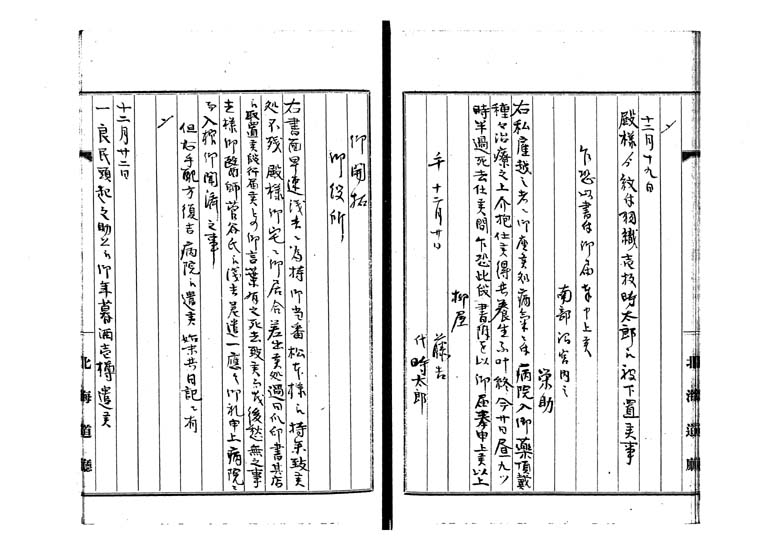 十二月十九日
殿様ゟ紋付羽織壱枚時太郎ゟ被下置候事
乍恐以書付御届奉申上候
南部沼宮内之
栄助
右私雇越之者ニ御座候処病気ニ而病院入御薬頂戴
種々治療之上介抱仕候得共養生不叶終今廿日昼九ツ
時半過死去仕候間乍恐此段書附を以御届奉申上候以上
子十二月廿日
柳屋
藤吉
代時太郎
御開拓
御役所
右書面早速浅吉ニ為持御当番松本様ゟ持参致候
処不残殿様御宅ニ御居合差出候処過日爪印書其店
ゟ取置候段行届候与の御言葉有之死去致候而茂後愁無之事
吉様御醫師菅谷氏ゟ浅吉差遣一應之御礼申上病院ニ
而入棺御聞済之事
但右手配方復吉病院ゟ遣候始末共日記ニ有
十二月廿二日
一良民頭起之助公ゟ御年暮酒壱樽遣候
北海道廳
北海道廳